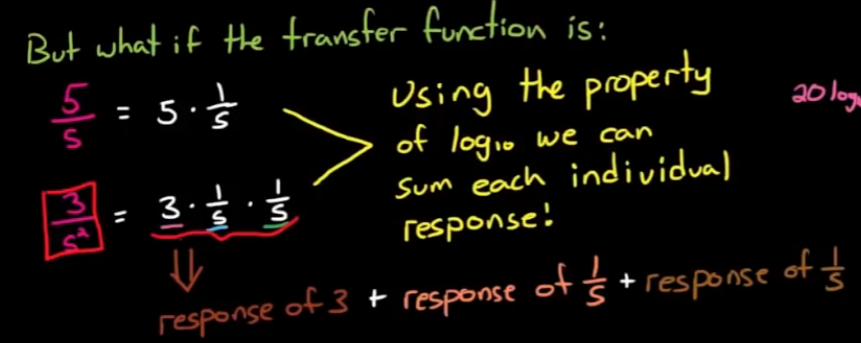 But what if the transfer function is:
5/s = 5 · 1/s
3/s² = 3 · 1/s · 1/s
Using the property
of log₁₀ we can
sum each individual
response!
20 log
⇓
response of 3 + response of 1/s + response of 1/s